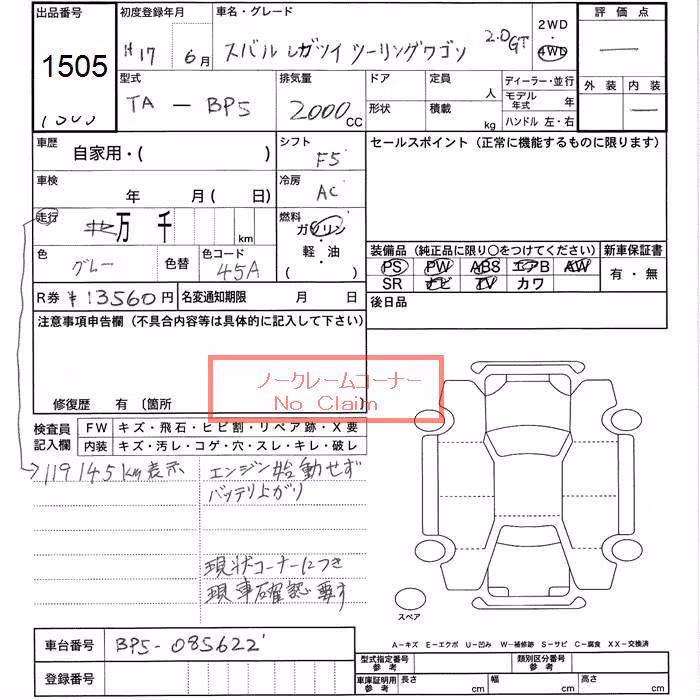 出品番号 初度登録年月 車名・グレード 2WD 評価点
1505 H17 6月 スバル レガツイ ツーリングワゴン 2.0GT 4WD
外装 内装
型式 排気量 ドア 定員 ディーラー・並行
TA - BP5 2000cc 人 モデル年式 年
形状 積載 kg ハンドル 左・右
車歴 シフト セールスポイント (正常に機能するものに限ります)
自家用・( ) F5
車検 冷房
年 月( 日) AC
走行 燃料
万 千 km ガソリン
軽・油
( )
色 色替 色コード 装備品 (純正品に限り○をつけてください) 新車保証書
グレー 45A PS PW ABS エアB AW 有・無
SR ナビ TV カワ
R券 ¥13560円 名変通知期限 月 日 後日品
注意事項申告欄 (不具合内容等は具体的に記入して下さい)
ノークレームコーナー
No Claim
修復歴 有 〔箇所 〕
検査員記入欄 FW キズ・飛石・ヒビ割・リペア跡・X要
内装 キズ・汚レ・コゲ・穴・スレ・キレ・破レ
119145km表示 エンジン始動せず
バッテリ上がり
現状コーナーにつき
現車確認要す
スペア
A-キズ E-エクボ U-凹み W-補修跡 S-サビ C-腐食 XX-交換済
車台番号 BP5-085622
型式指定番号 参考 類別区分番号 参考
登録番号
車庫証明用 参考 長さ cm 幅 cm 高さ cm